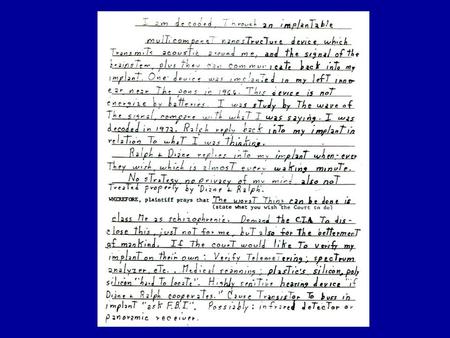 I am decoded, Through an implantable
multicomponet nanostructure device, which
Transmits acoustic around me, and the signal of the
brainstem, plus they can communicate back into my
implant. One device was implanted in my left inner
ear near The pons in 1966. This device is not
energize by batteries. I was study by The wave of
The signal, compare with what I was saying. I was
decoded in 1972. Ralph reply back into my implant in
relation To what I was Thinking.
Ralph & Diane replies into my implant when-ever
They wish which is almost every waking minute.
No strategy no privacy of my mind, also not
Treated properly by Diane & Ralph.
WHEREFORE, plaintiff prays that The worst Thing can be done is
(state what you wish the Court to do)
class Me as schizophrenic. Demand the C.I.A To dis-
close this, just not for me, but also for the betterment
of mankind. If the court would like to verify my
implant on their own: Verify Telemetering; spectrum
analyzer etc.. Medical scanning: plastic's, silicon, poly
silicon "hard to locate". Highly senitive hearing device if
Diane & Ralph cooperates." Cause Transistor To buss in
implant "ask F.B.I". Possiably: infrared detector or
panoramic receiver.